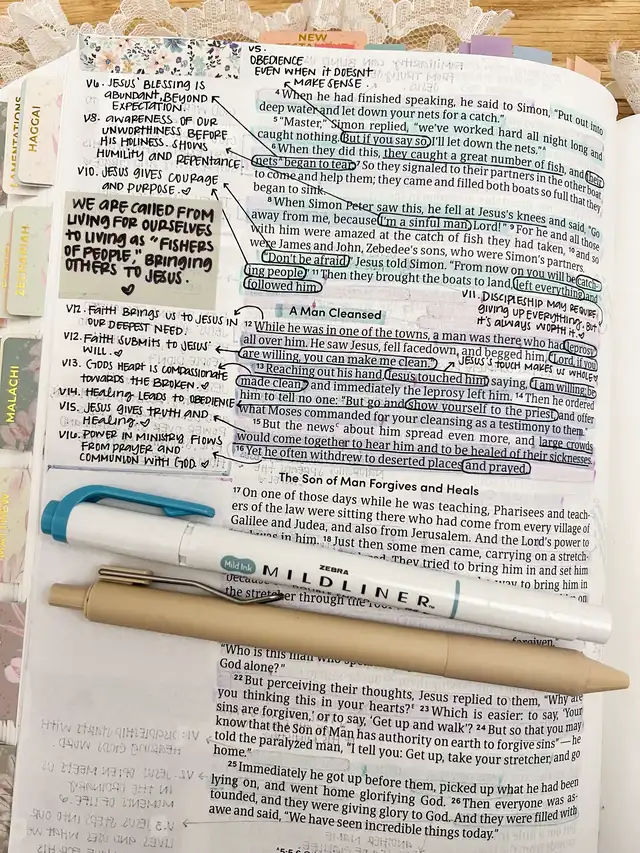 NEW
LAMENTATIONS
HAGGAI
ZECHARIAH
MALACHI
V5.
OBEDIENCE
EVEN WHEN IT DOESN'T
MAKE SENSE.
V6. JESUS' BLESSING IS
ABUNDANT, BEYOND
EXPECTATION.
V8. AWARENESS OF OUR
UNWORTHINESS BEFORE
HIS HOLINESS. SHOWS
HUMILITY AND REPENTANCE.
V10. JESUS GIVES COURAGE
AND PURPOSE.
WE ARE CALLED FROM
LIVING FOR OURSELVES
TO LIVING AS "FISHERS
OF PEOPLE," BRINGING
OTHERS TO JESUS.
V12. FAITH BRINGS US TO JESUS IN
OUR DEEPEST NEED.
V12. FAITH SUBMITS TO JESUS'
WILL.
V13. GOD'S HEART IS COMPASSIONATE
TOWARDS THE BROKEN.
V14. HEALING LEADS TO OBEDIENCE
V15. JESUS GIVES TRUTH AND
HEALING.
V16. POWER IN MINISTRY FLOWS
FROM PRAYER AND
COMMUNION WITH GOD.
4 When he had finished speaking, he said to Simon, "Put out into
deep water and let down your nets for a catch."
5 "Master," Simon replied, "we've worked hard all night long and
caught nothing. But if you say so, I'll let down the nets."
6 When they did this, they caught a great number of fish, and their
nets began to tear. 7 So they signaled to their partners in the other boat
to come and help them; they came and filled both boats so full that they
began to sink.
8 When Simon Peter saw this, he fell at Jesus's knees and said, "Go
away from me, because I'm a sinful man, Lord!" 9 For he and all those
with him were amazed at the catch of fish they had taken, 10 and so
were James and John, Zebedee's sons, who were Simon's partners.
"Don't be afraid," Jesus told Simon. "From now on you will be catch-
ing people." 11 Then they brought the boats to land, left everything, and
followed him.
V11. DISCIPLESHIP MAY REQUIRE
GIVING UP EVERYTHING, BUT
IT'S ALWAYS WORTH IT.
A Man Cleansed
12 While he was in one of the towns, a man was there who had leprosy
all over him. He saw Jesus, fell facedown, and begged him, "Lord, if you
are willing, you can make me clean."
JESUS'S TOUCH MAKES US WHOLE
13 Reaching out his hand, Jesus touched him, saying, "I am willing; be
made clean," and immediately the leprosy left him. 14 Then he ordered
him to tell no one: "But go and show yourself to the priest, and offer
what Moses commanded for your cleansing as a testimony to them."
15 But the news about him spread even more, and large crowds
would come together to hear him and to be healed of their sicknesses.
16 Yet he often withdrew to deserted places and prayed.
The Son of Man Forgives and Heals
17 On one of those days while he was teaching, Pharisees and teach-
ers of the law were sitting there who had come from every village of
Galilee and Judea, and also from Jerusalem. And the Lord's power to
was in him. 18 Just then some men came, carrying on a stretch-
They tried to bring him in and set him
way to bring him in
because
on
the stretcher through the
Mild Ink
ZEBRA
MILDLINER
forgiven.
"Who is this man who
God alone?"
22 But perceiving their thoughts, Jesus replied to them, "Why are
you thinking this in your hearts? 23 Which is easier: to say, 'Your
sins are forgiven,' or to say, 'Get up and walk'? 24 But so that you may
know that the Son of Man has authority on earth to forgive sins" — he
told the paralyzed man, "I tell you: Get up, take your stretcher, and go
home."
25 Immediately he got up before them, picked up what he had been
lying on, and went home glorifying God. 26 Then everyone was as-
tounded, and they were giving glory to God. And they were filled with
awe and said, "We have seen incredible things today."